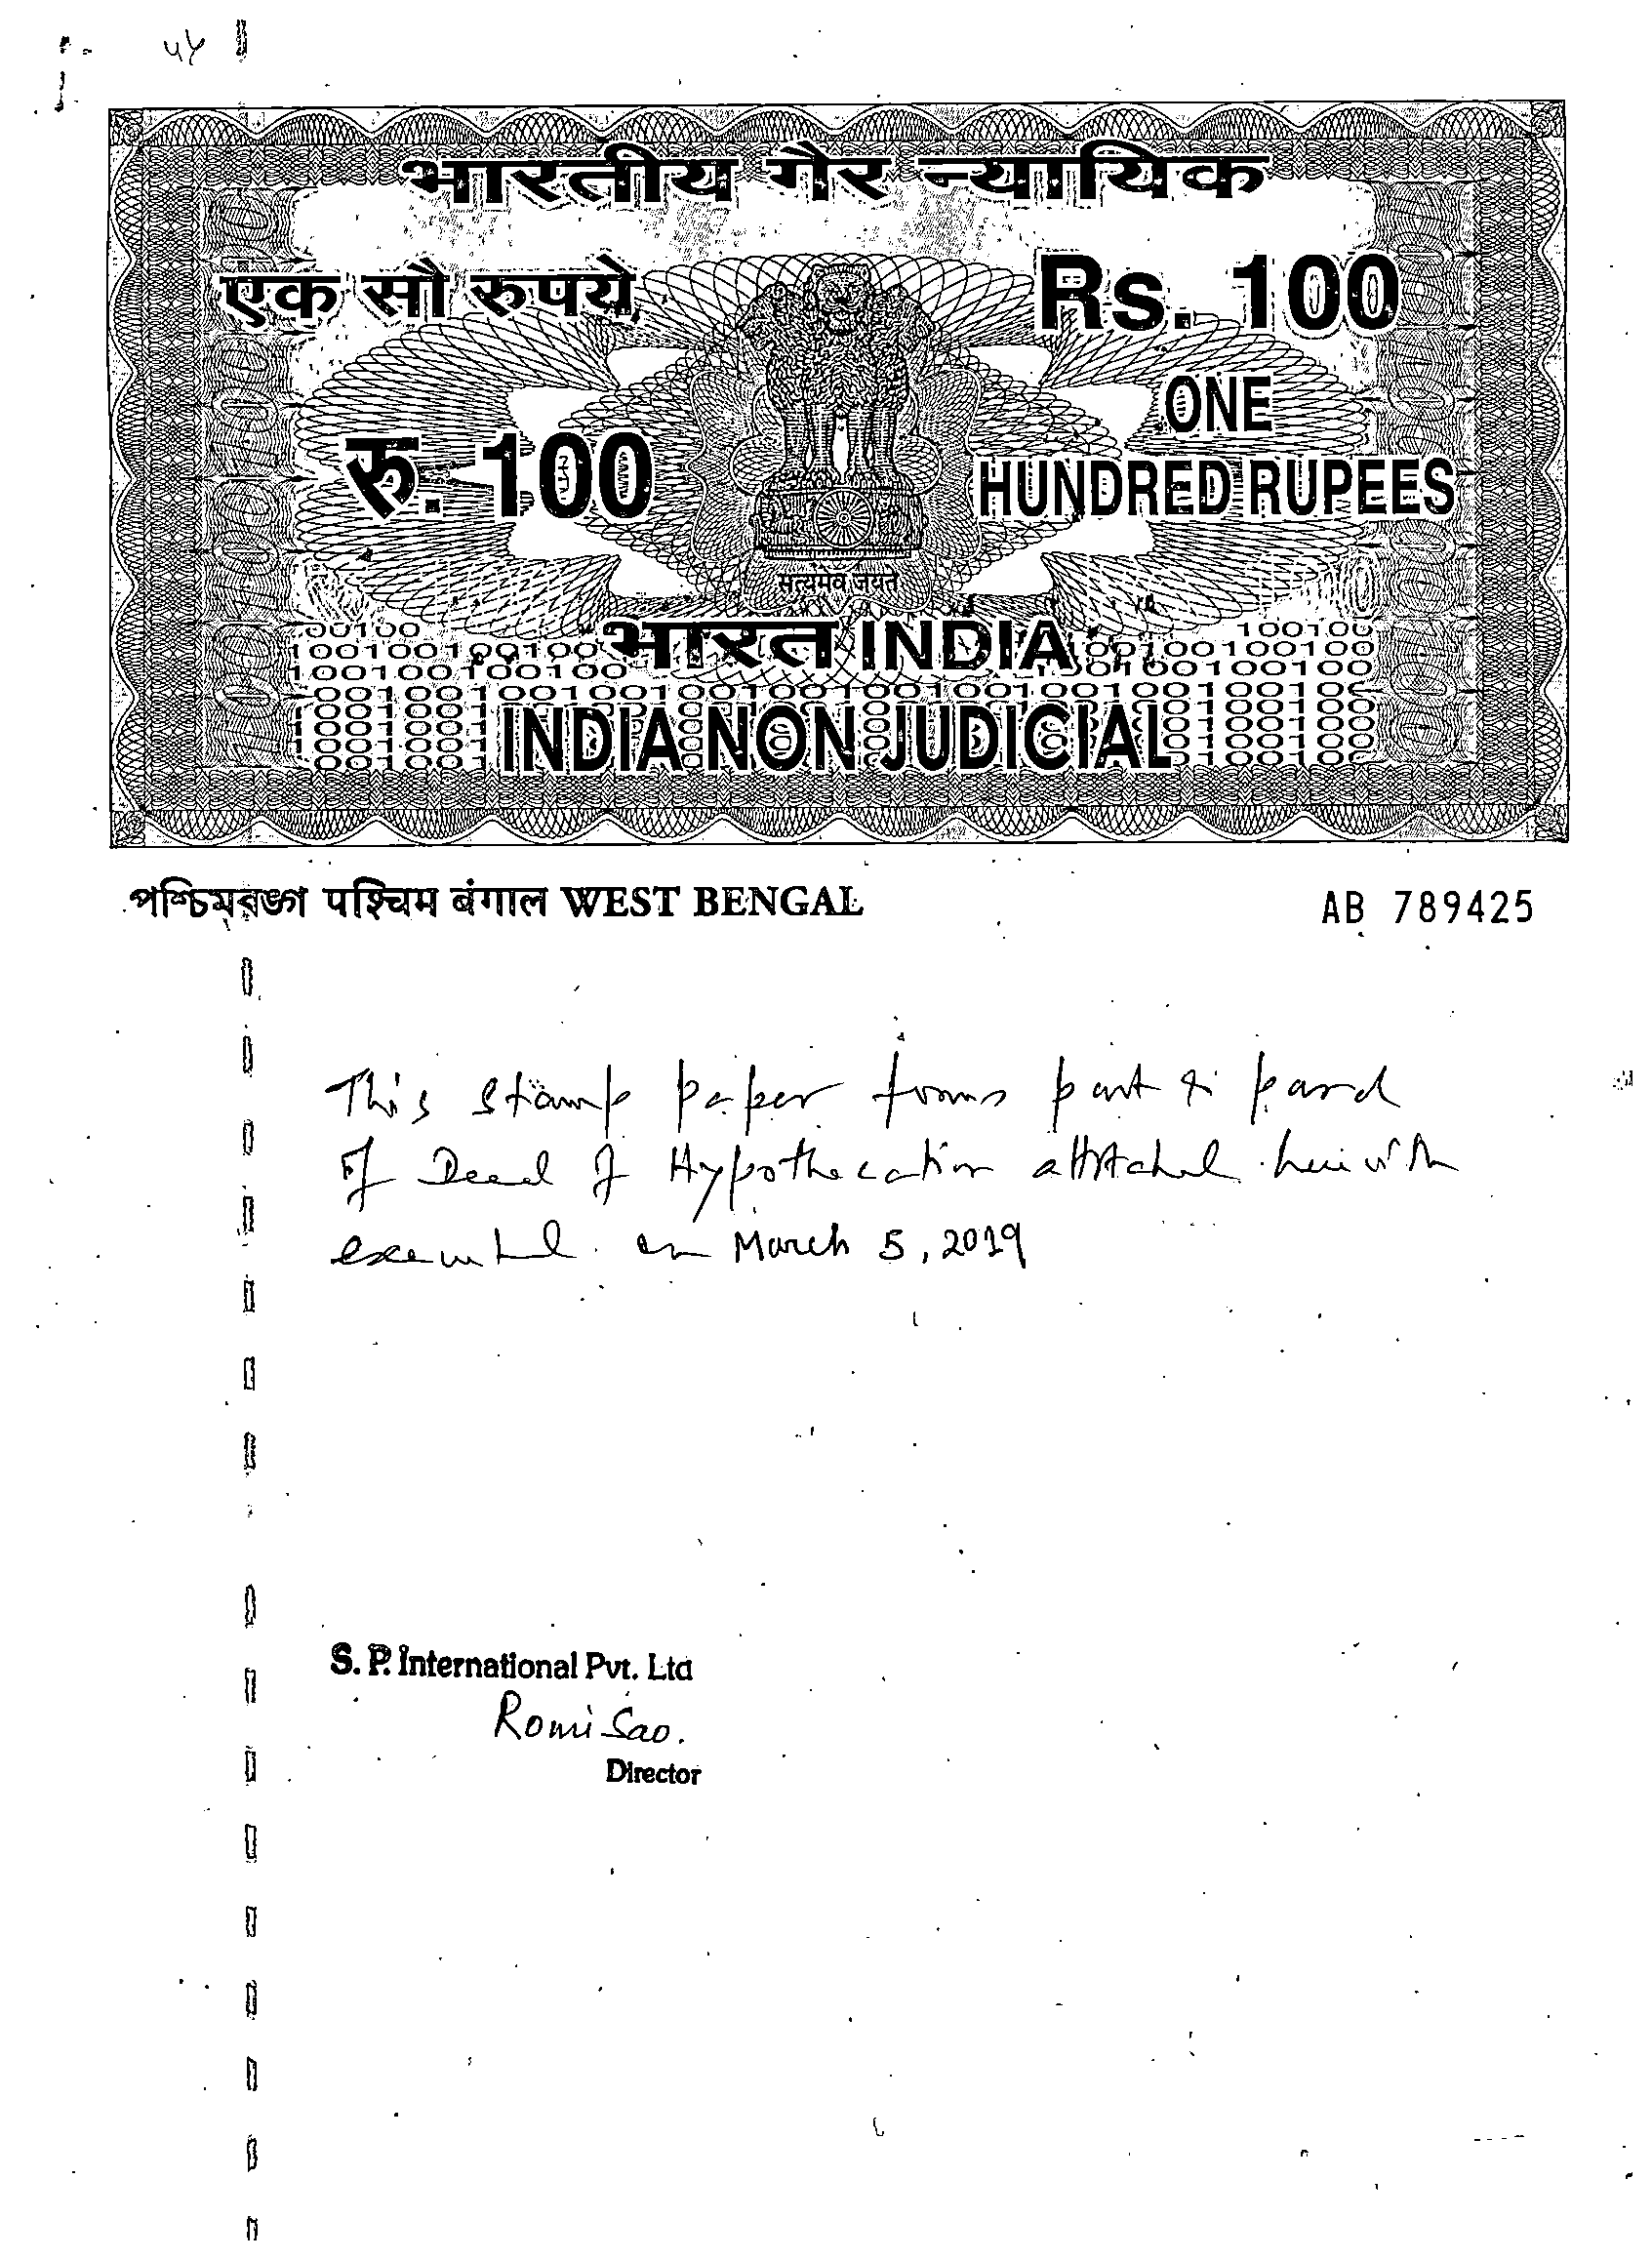 44
भारतीय गैर न्यायिक
एक सौ रुपये
Rs. 100
रु. 100
ONE
HUNDRED RUPEES
सत्यमेव जयते
भारत INDIA
INDIA NON JUDICIAL
পশ্চিমবঙ্গ पश्चिम बंगाल WEST BENGAL
AB 789425
This stamp paper forms part &
of Deed of Hypothecation attatched herewith
executed on March 5, 2019
S. P. International Pvt. Ltd
Romi Sao.
Director